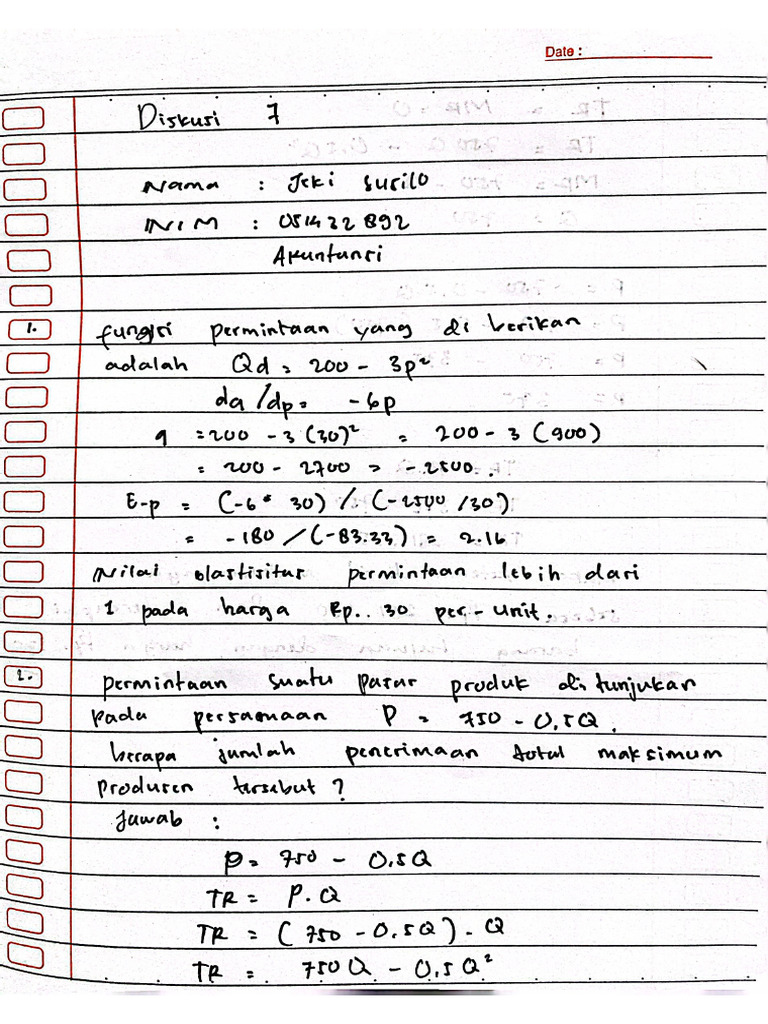 Date :
Diskusi 7
Nama : Jeki Surilo
NIM : 051432892
Akuntansi
1. fungsi permintaan yang di berikan
adalah Qd = 200 - 3p²
da/dp = -6p
q = 200 - 3 (30)² = 200 - 3 (900)
= 200 - 2700 = -2500.
E-p = (-6 * 30) / (-2500 /30)
= -180 / (-83.33) = 2.16
Nilai elastisitas permintaan lebih dari
1 pada harga Rp.. 30 per-unit.
2. permintaan suatu pasar produk di tunjukan
pada persamaan P = 750 - 0,5Q.
berapa jumlah penerimaan total maksimum
produsen tersebut ?
Jawab :
P = 750 - 0,5Q
TR = P.Q
TR = (750 - 0,5Q) . Q
TR = 750Q - 0,5Q²